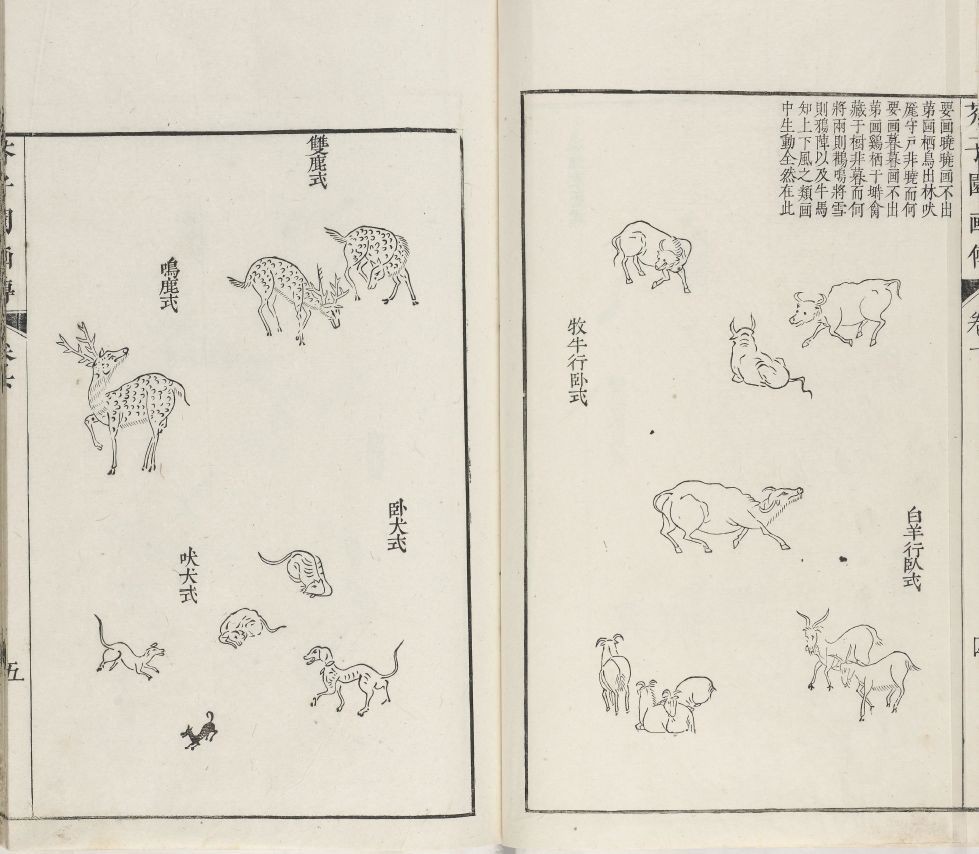 要画曉曉画不出
苐画栖鳥出林吠
厖守戸非曉而何
要画暮暮画不出
苐画鷄栖于塒禽
藏于樹非暮而何
將雨則鸛鳴將雪
則鴉陣以及牛馬
知上下風之類画
中生動全然在此
白羊行臥式
牧牛行卧式
雙鹿式
鳴鹿式
卧犬式
吠犬式
五